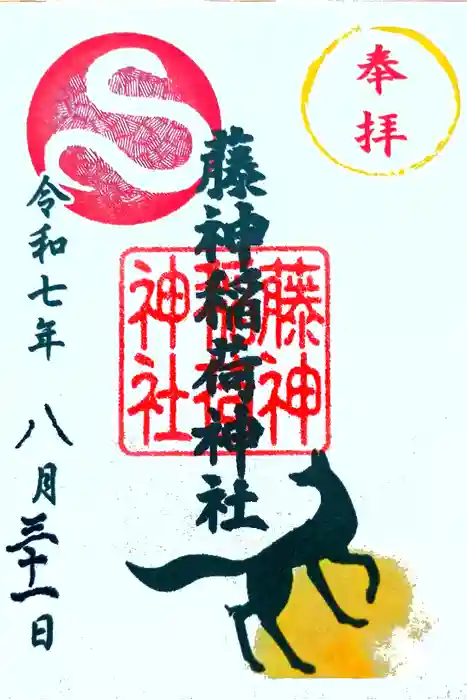 奉拝
藤神稲荷神社
藤神
稲荷
神社
令和七年
八月三十一日